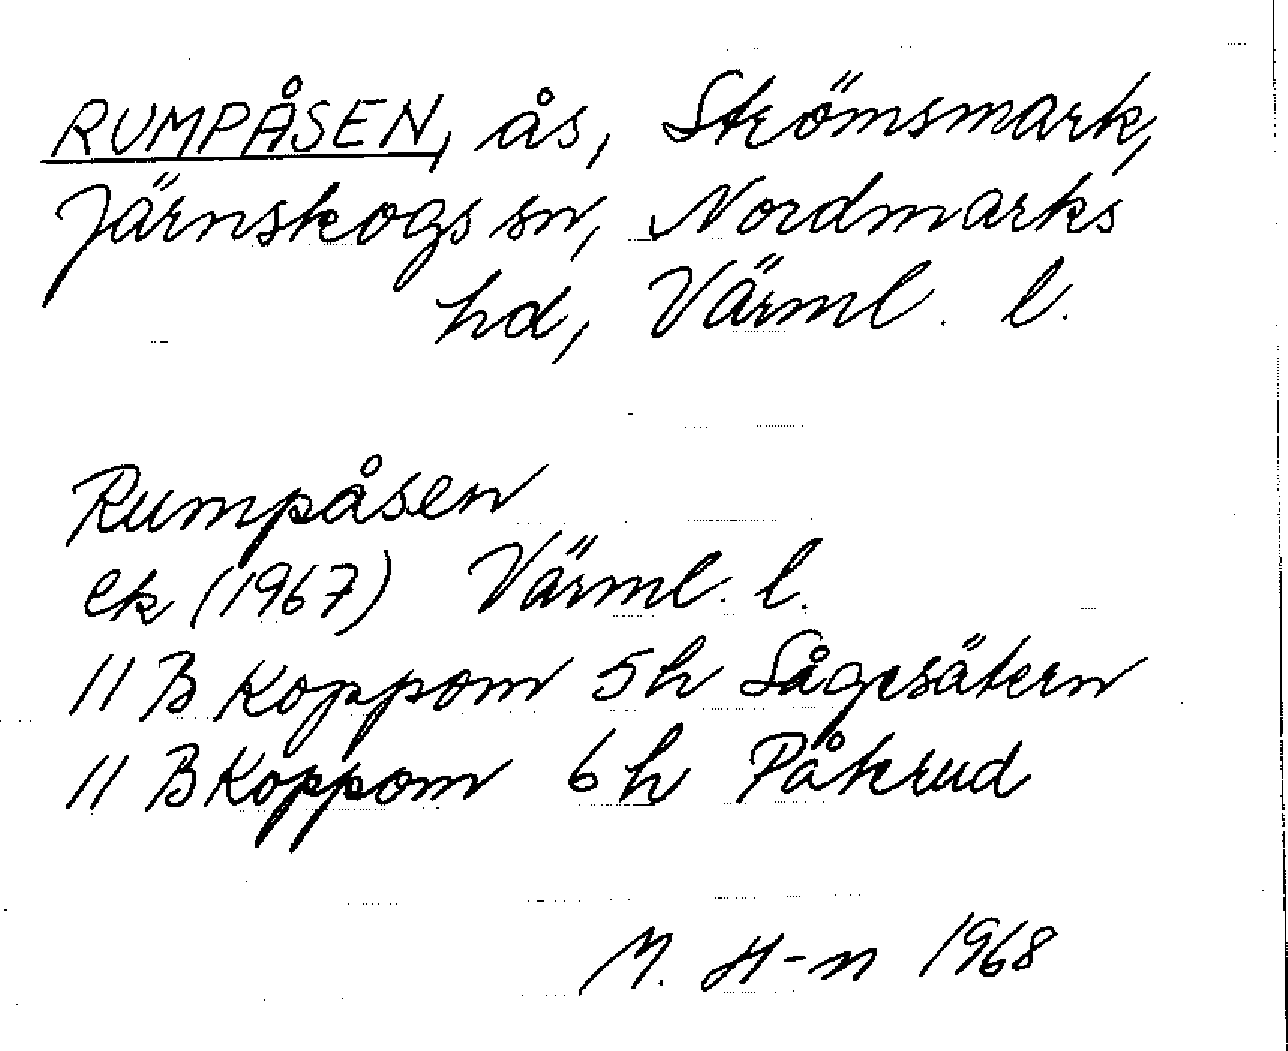 RUMPÅSEN, ås, Strömsmark,
Järnskogs sn, Nordmarks
hd, Värml. l.
Rumpåsen
ek (1967) Värml. l.
11 B Koppom 5h Sågesätern
11 B Koppom 6h Påterud
M. H-n 1968